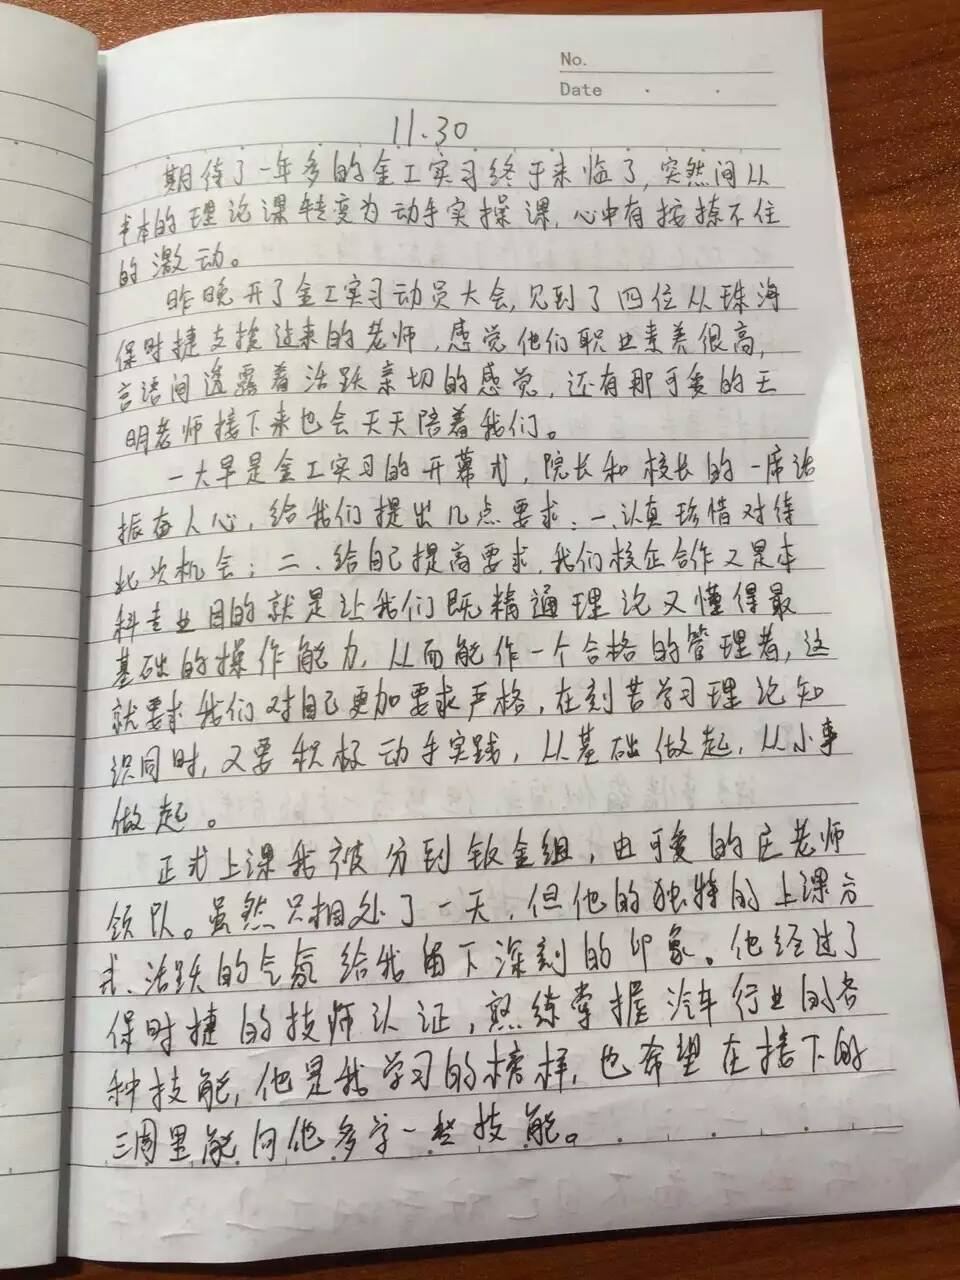 No.
Date
11.30
期待了一年多的金工实习终于来临了,突然间从
书本的理论课转变为动手实操课,心中有按捺不住
的激动。
昨晚开了金工实习动员大会,见到了四位从珠海
保时捷支援过来的老师,感觉他们职业素养很高,
言语间透露着活跃亲切的感觉,还有那可爱的王
明老师接下来也会天天陪着我们。
一大早是金工实习的开幕式,院长和校长的一席话
振奋人心,给我们提出几点要求:一、认真珍惜对待
此次机会;二、给自己提高要求,我们校企合作又是本
科专业目的就是让我们既精通理论又懂得最
基础的操作能力,从而能作一个合格的管理者,这
就要求我们对自己更加要求严格,在刻苦学习理论知
识同时,又要积极动手实践,从基础做起,从小事
做起。
正式上课我被分到钣金组,由可爱的庄老师
领队。虽然只相处了一天,但他的独特的上课方
式、活跃的气氛给我留下深刻的印象。他经过了
保时捷的技师认证,熟练掌握汽车行业的各
种技能,他是我学习的榜样,也希望在接下的
三周里能向他多学一些技能。